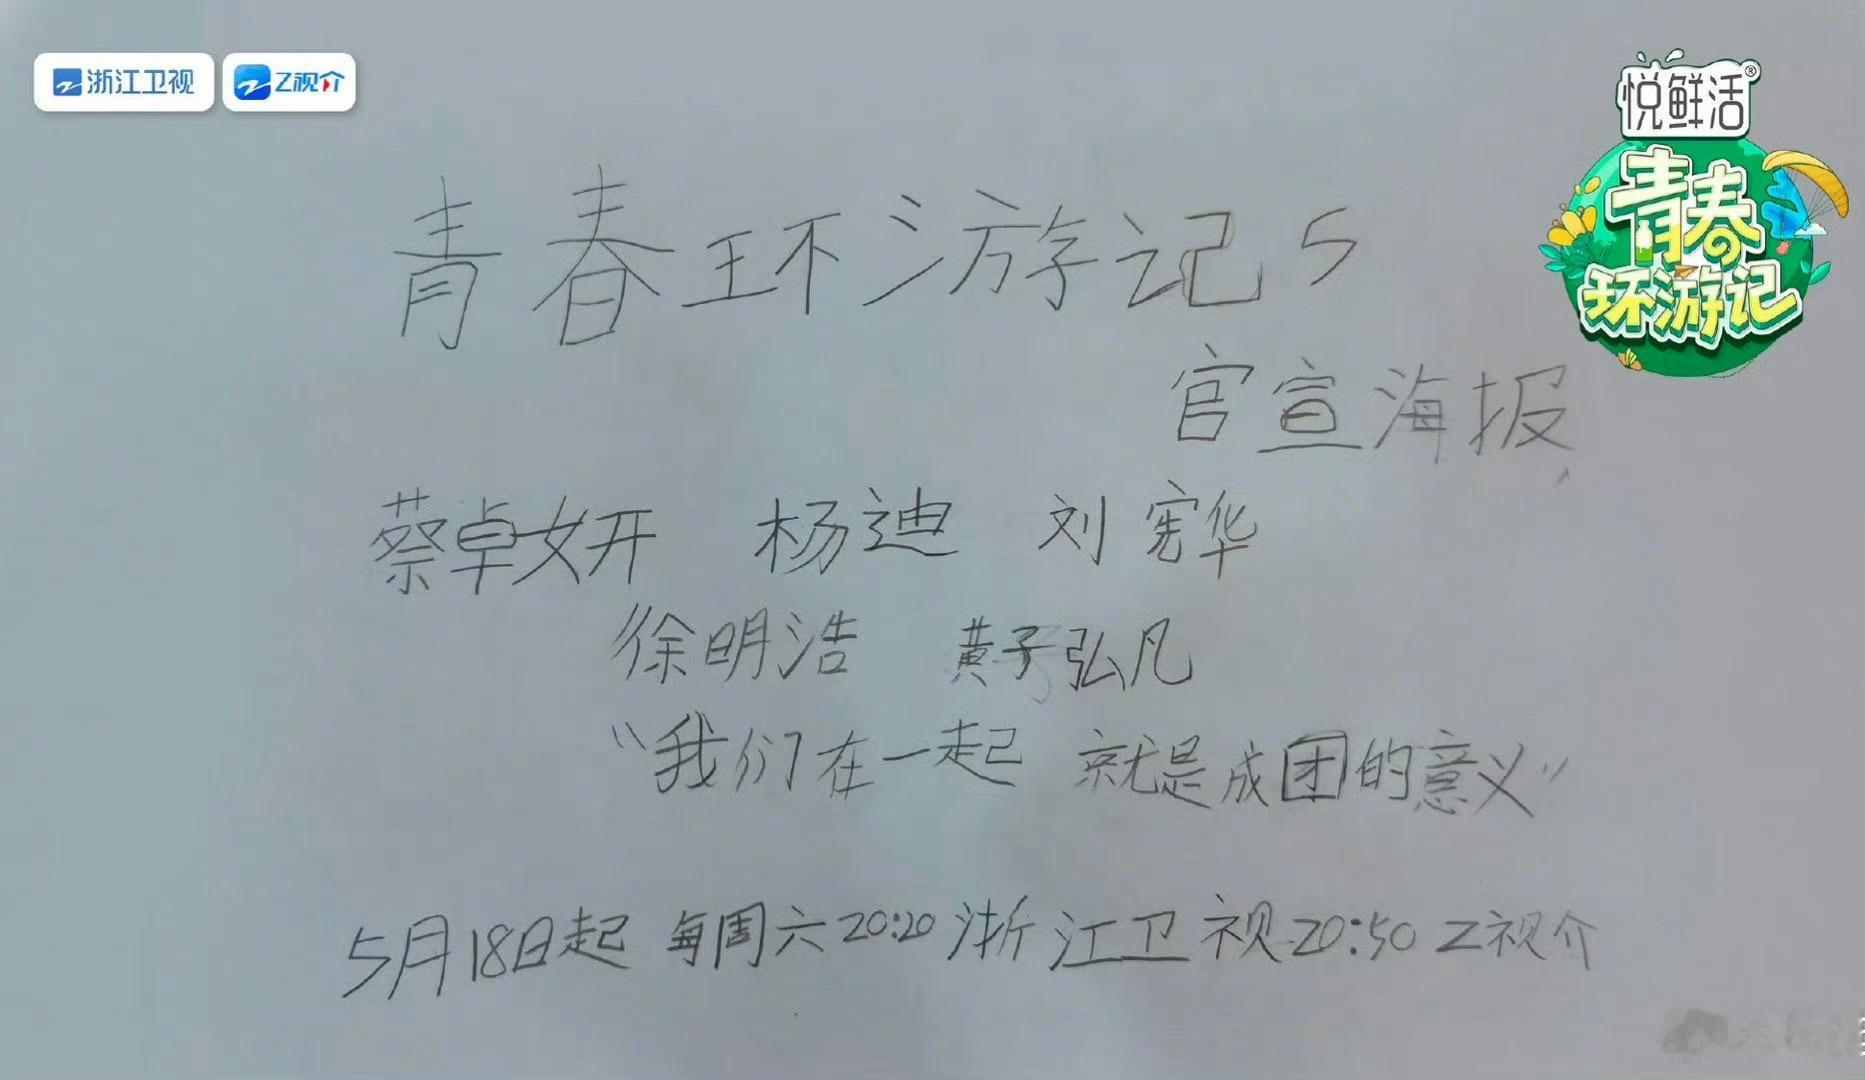 浙江卫视 Z视介
悦鲜活®
青春
环游记
青春环游记5
官宣海报
蔡卓妍 杨迪 刘宪华
徐明浩 黄子弘凡
“我们在一起 就是成团的意义”
5月18日起 每周六20:20浙江卫视20:50Z视介